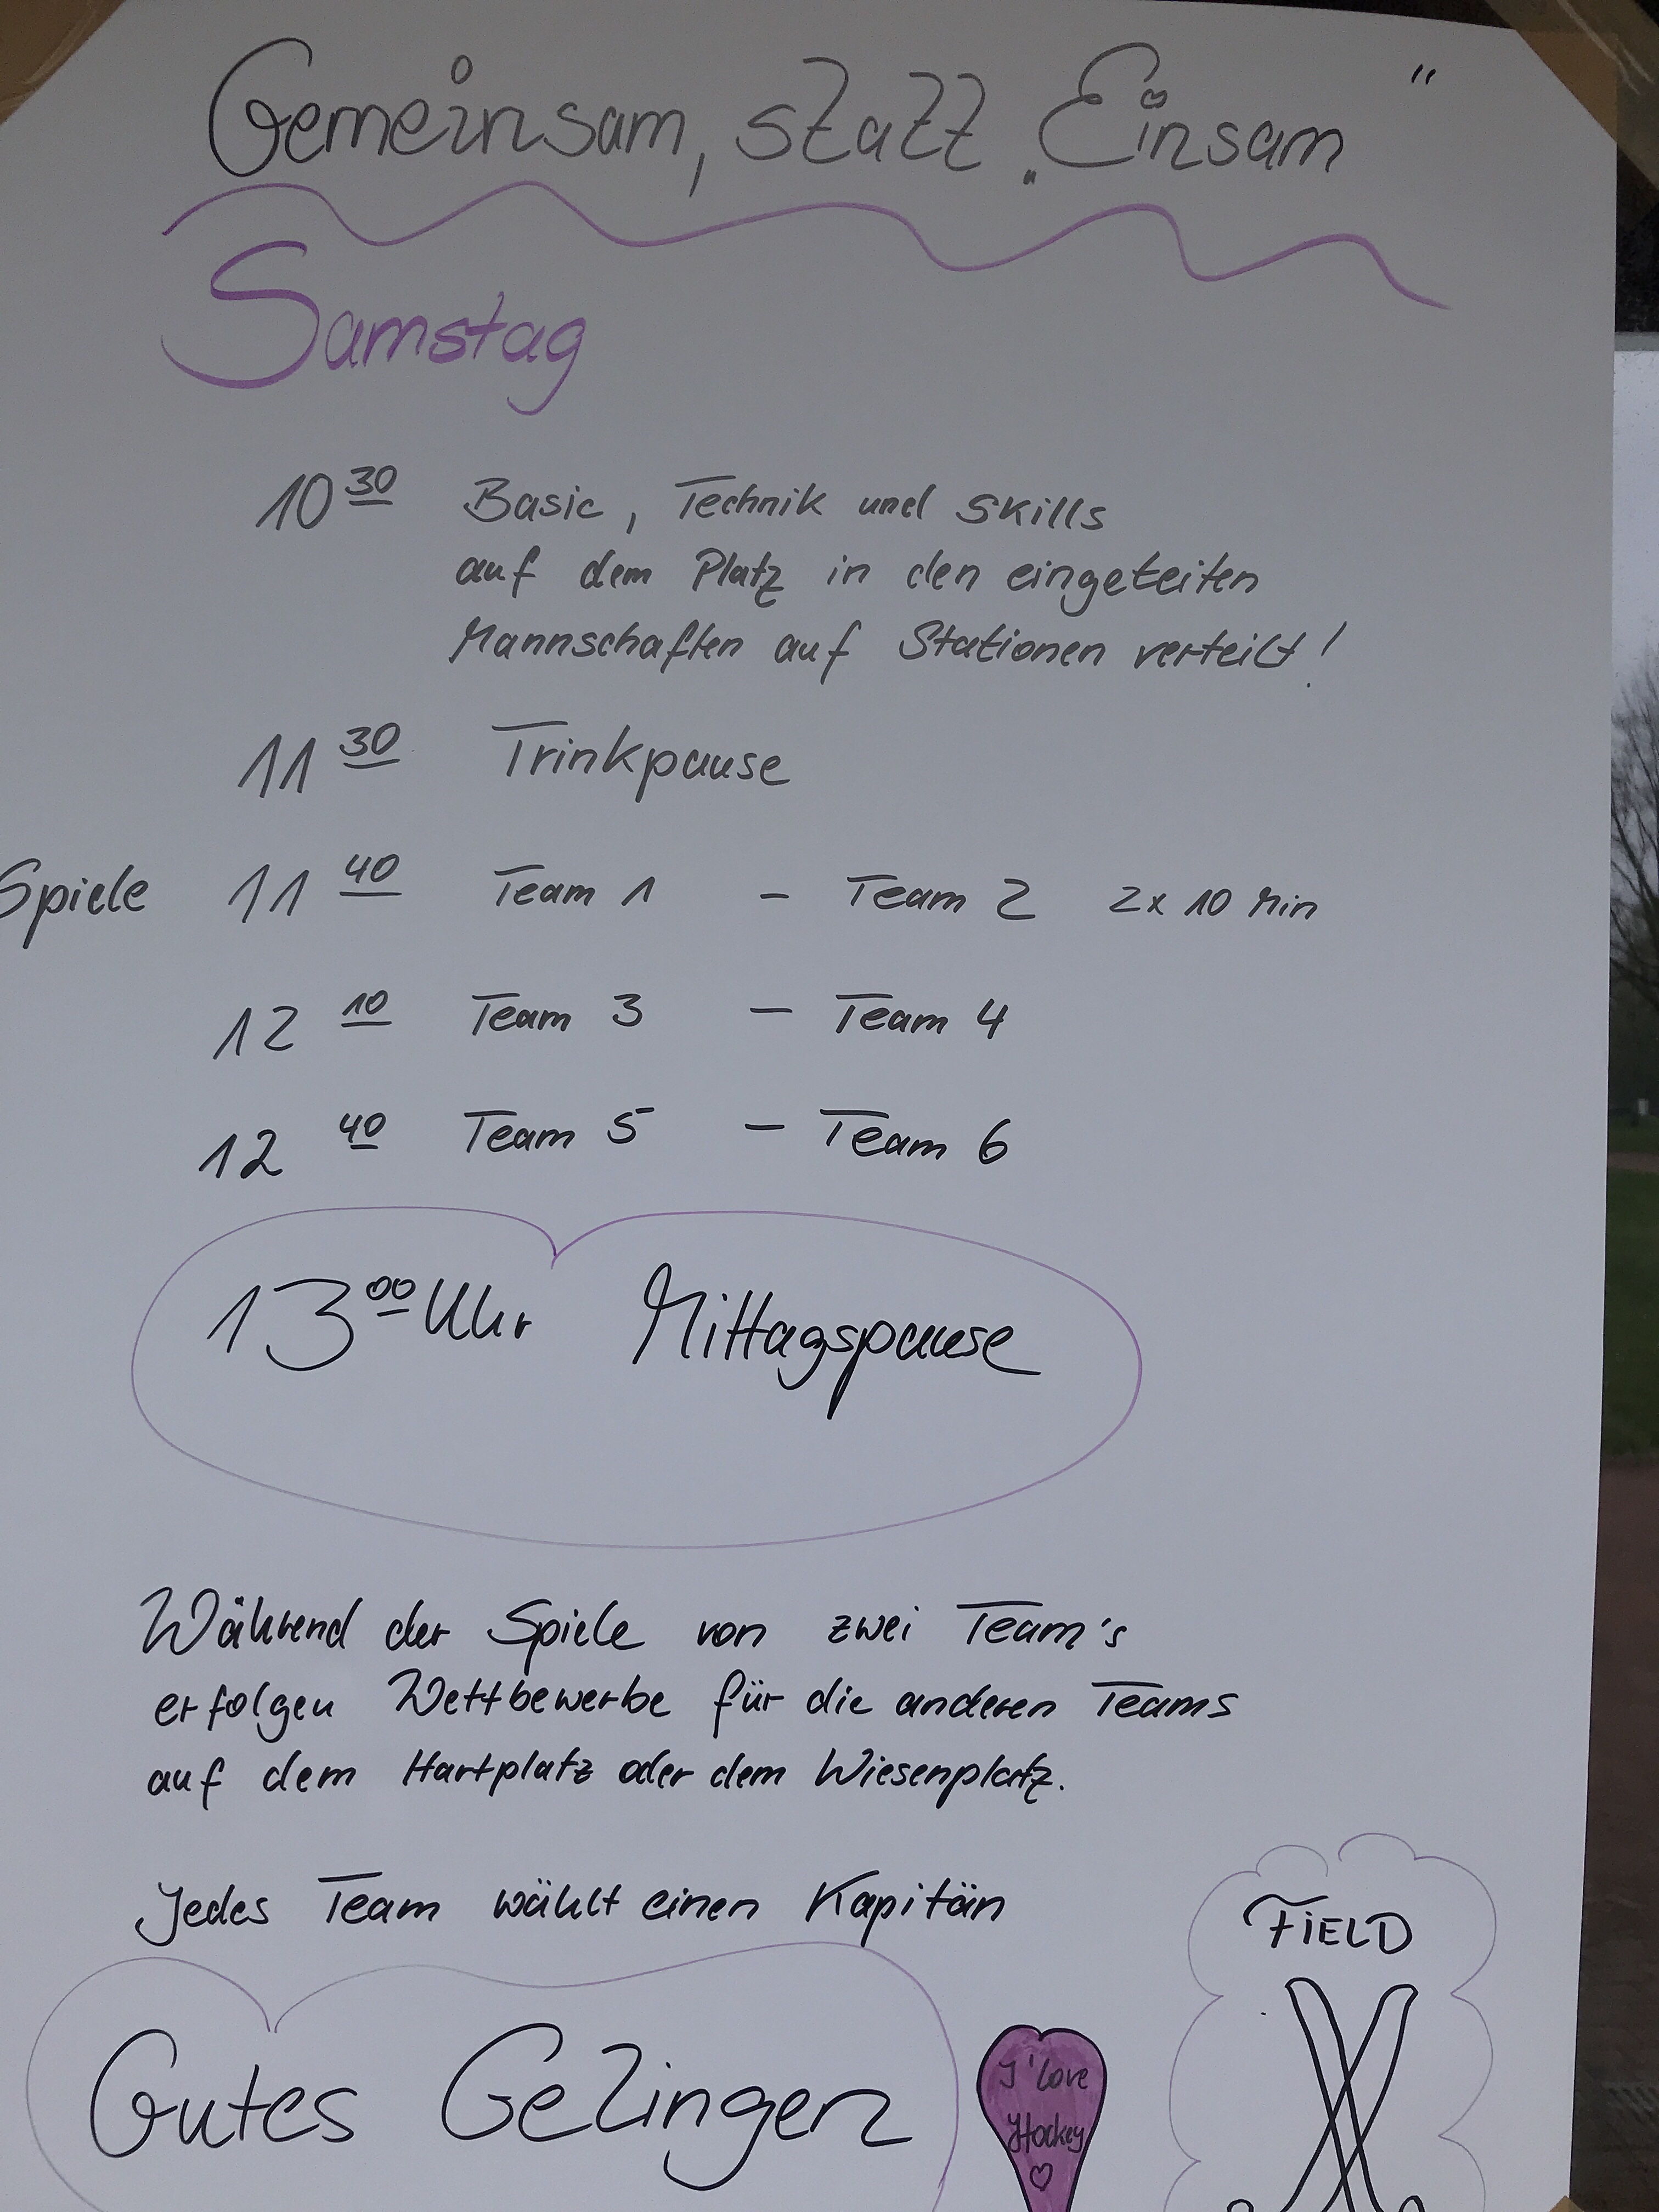 Gemeinsam, statt „Einsam"
Samstag
10 30 Basic, Technik und Skills
auf dem Platz in den eingeteilten
Mannschaften auf Stationen verteilt!
11 30 Trinkpause
Spiele 11 40 Team 1 - Team 2 2x 10 Min
12 10 Team 3 - Team 4
12 40 Team 5 - Team 6
13 00 Uhr Mittagspause
Während der Spiele von zwei Team's
erfolgen Wettbewerbe für die anderen Teams
auf dem Hartplatz oder dem Wiesenplatz.
Jedes Team wählt einen Kapitän
FiELD
Gutes Gelingen
I'love
Hockey